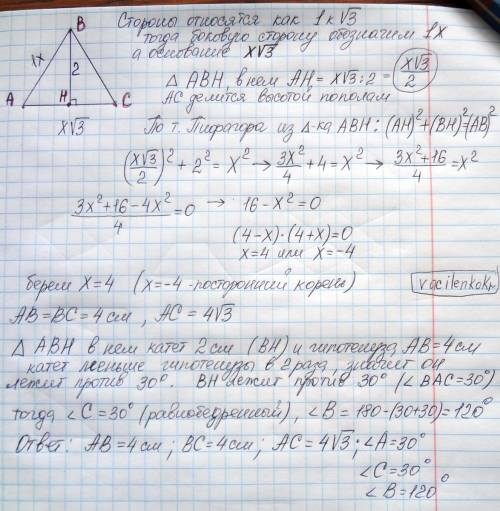 Стороны относятся как 1 к √3
тогда боковую сторону обозначим 1x
а основание x√3
B
1x
2
A H C
x√3
△ ABH, в нем AH = x√3 : 2 = x√3/2
AC делится высотой пополам
По т. Пифагора из △-ка ABH: (AH)²+(BH)²=(AB)²
(x√3/2)² + 2² = x² → 3x²/4 + 4 = x² → 3x²+16/4 = x²
3x²+16-4x²/4 = 0 → 16-x² = 0
(4-x)·(4+x)=0
x=4 или x=-4
берем x=4 (x=-4 -посторонний корень)
vacilenkokp
AB=BC=4см, AC = 4√3
△ ABH в нем катет 2см (BH) и гипотенуза AB=4см
катет меньше гипотенузы в 2 раза, значит он
лежит против 30°. BH лежит против 30° (∠BAC=30°)
тогда ∠C=30° (равнобедренный), ∠B = 180-(30+30)=120°
Ответ: AB=4см; BC=4см; AC=4√3; ∠A=30°
∠C=30°
∠B=120°